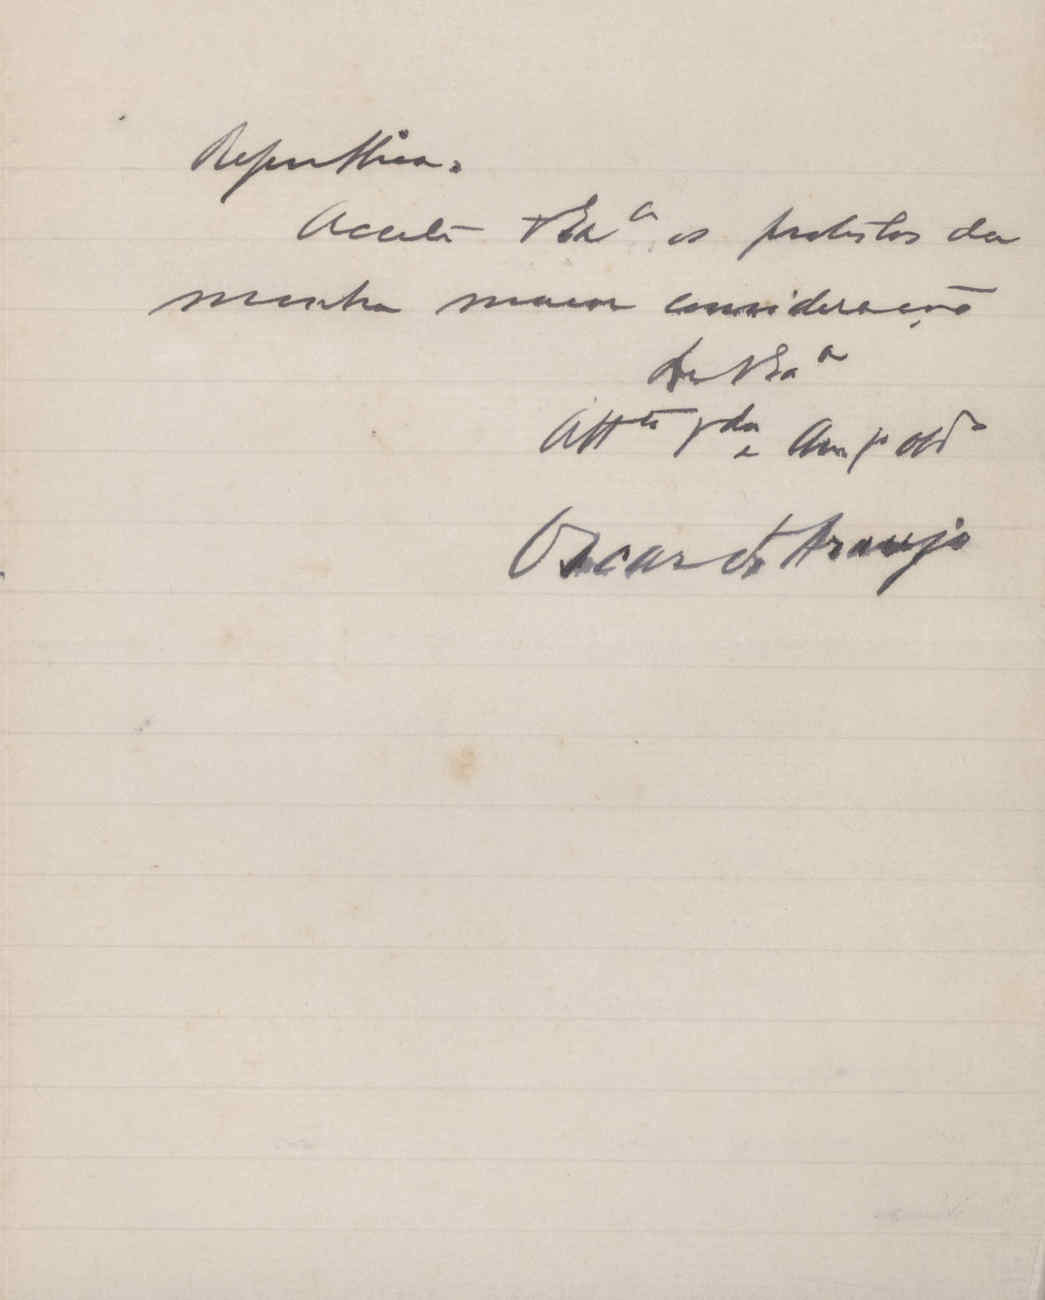 Republica.
Acceite V Exª os protestos da
minha maior consideração
De V Exª
Attº Vdor e Amº Obrº
Oscar de Araujo